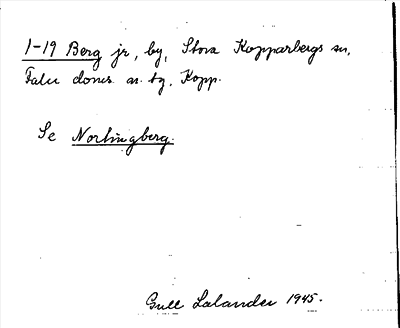 1-19 Berg jr, by, Stora Kopparbergs sn,
Falu doms. as. tg. Kopp.
Se Norlingberg.
Gull Lalander 1945.